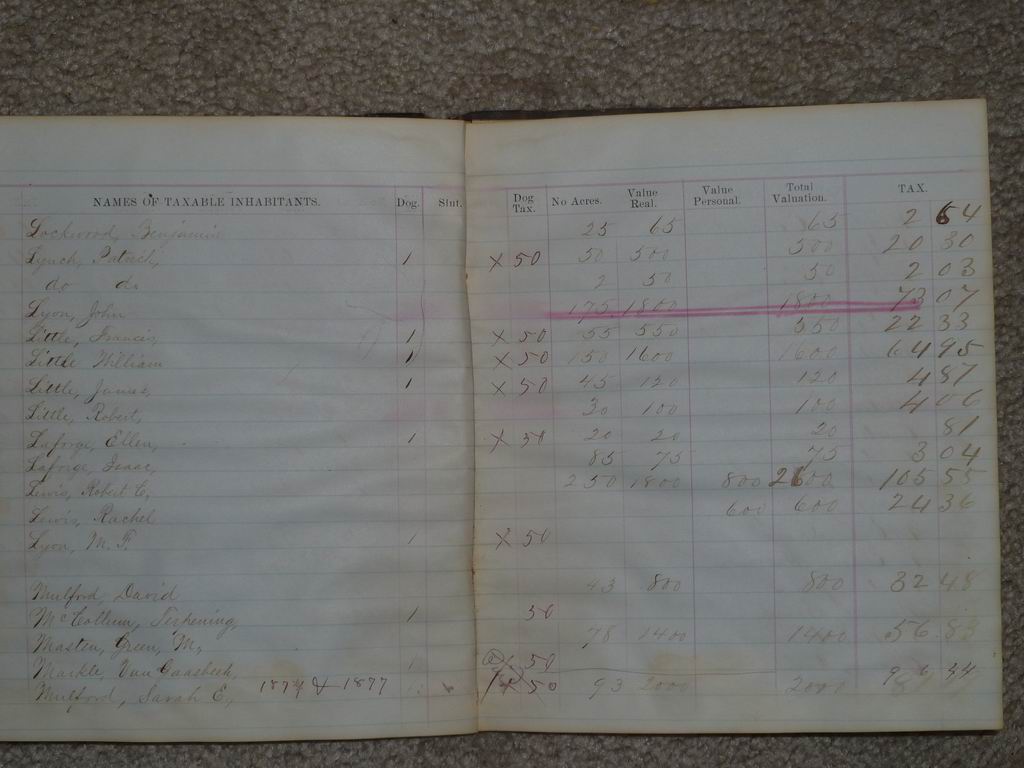 NAMES OF TAXABLE INHABITANTS. Dog. Slut. Dog Tax. No Acres. Value Real. Value Personal. Total Valuation. TAX.
Lockwood, Benjamin 25 65 65 2 64
Lynch, Patrick, 1 X 50 50 500 500 20 30
do do 2 50 50 2 03
Lyon, John 175 1800 1800 73 07
Little, Francis, 1 X 50 55 550 550 22 33
Little William 1 X 50 150 1600 1600 64 95
Little, James, 1 X 50 45 120 120 4 87
Little, Robert, 30 100 100 4 06
Laforge, Ellen, 1 X 50 20 20 20 81
Laforge, Isaac, 85 75 75 3 04
Lewis, Robert C, 250 1800 800 2600 105 55
Lewis, Rachel 600 600 24 36
Lyon, M. F. 1 X 50
Mulford, David 43 800 800 32 48
McCollum, Terkening, 1 50
Masten, Green, M, 78 1400 1400 56 83
Markle, Van Gaasbeek, 1 50
Mulford, Sarah E, & 1877 1 X 50 93 2000 2000